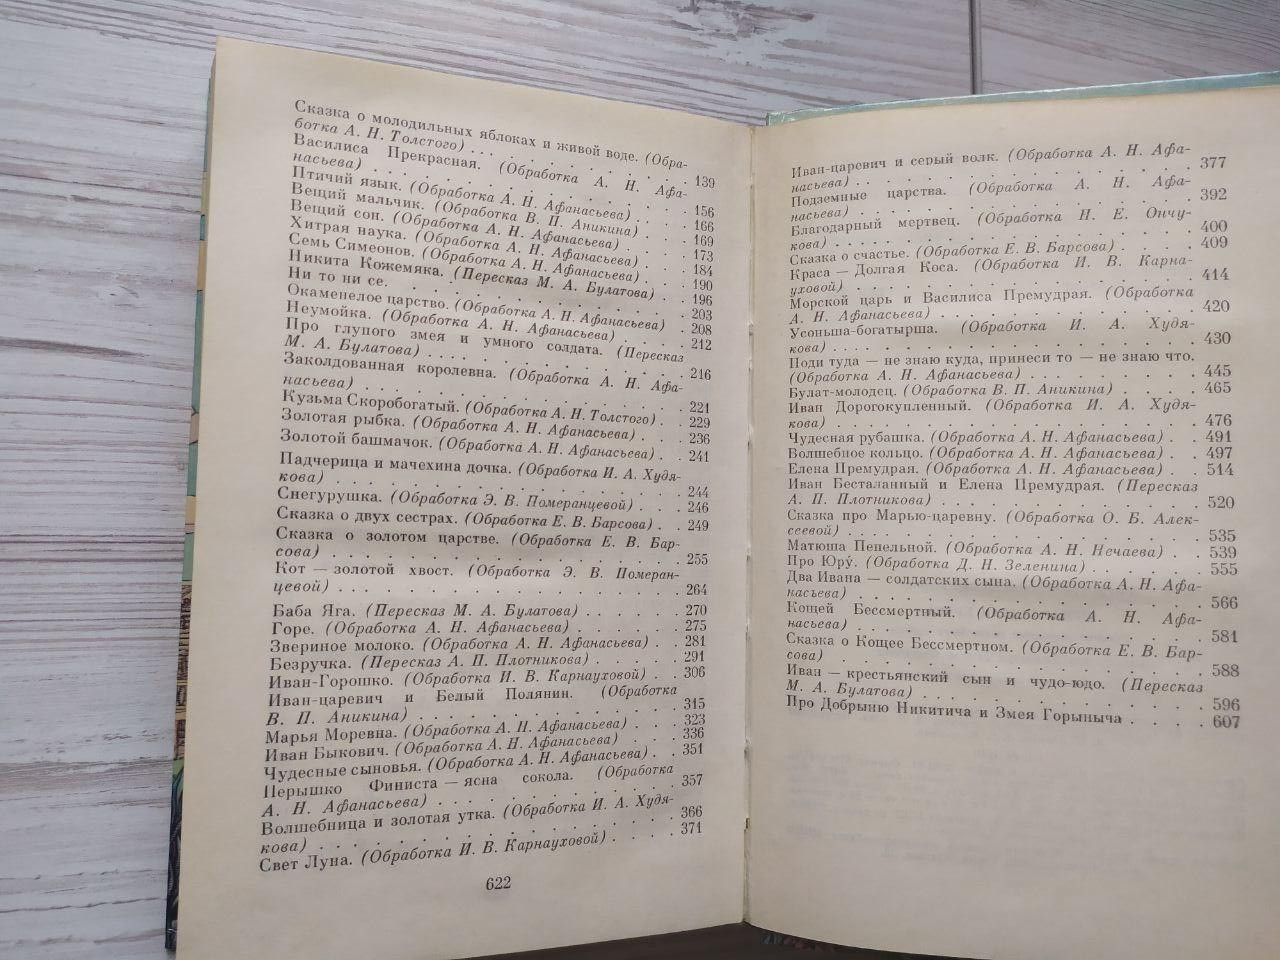 Сказка о молодильных яблоках и живой воде. (Обра-
ботка А. Н. Толстого) . . . . . . . . . . 139
Василиса Прекрасная. (Обработка А. Н. Афа-
насьева) . . . . . . . . . . . . . . 156
Птичий язык. (Обработка А. Н. Афанасьева) . . . 166
Вещий мальчик. (Обработка В. П. Аникина) . . . 169
Вещий сон. (Обработка А. Н. Афанасьева) . . . 173
Хитрая наука. (Обработка А. Н. Афанасьева) . . . 184
Семь Симеонов. (Обработка А. Н. Афанасьева) . . 190
Никита Кожемяка. (Пересказ М. А. Булатова) . . 196
Ни то ни се. . . . . . . . . . . . . . 203
Окаменелое царство. (Обработка А. Н. Афанасьева) . 208
Неумойка. (Обработка А. Н. Афанасьева) . . . . 212
Про глупого змея и умного солдата. (Пересказ
М. А. Булатова) . . . . . . . . . . . . 216
Заколдованная королевна. (Обработка А. Н. Афа-
насьева) . . . . . . . . . . . . . . 221
Кузьма Скоробогатый. (Обработка А. Н. Толстого) . 229
Золотая рыбка. (Обработка А. Н. Афанасьева) . . . 236
Золотой башмачок. (Обработка А. Н. Афанасьева) . . 241
Падчерица и мачехина дочка. (Обработка И. А. Худя-
кова) . . . . . . . . . . . . . . . 244
Снегурушка. (Обработка Э. В. Померанцевой) . . . 246
Сказка о двух сестрах. (Обработка Е. В. Барсова) . . 249
Сказка о золотом царстве. (Обработка Е. В. Бар-
сова) . . . . . . . . . . . . . . . 255
Кот — золотой хвост. (Обработка Э. В. Померан-
цевой) . . . . . . . . . . . . . . . 264
Баба Яга. (Пересказ М. А. Булатова) . . . . . 270
Горе. (Обработка А. Н. Афанасьева) . . . . . . 275
Звериное молоко. (Обработка А. Н. Афанасьева) . . 281
Безручка. (Пересказ А. П. Плотникова) . . . . . 291
Иван-Горошко. (Обработка И. В. Карнауховой) . . . 306
Иван-царевич и Белый Полянин. (Обработка
В. П. Аникина) . . . . . . . . . . . . 315
Марья Моревна. (Обработка А. Н. Афанасьева) . . . 323
Иван Быкович. (Обработка А. Н. Афанасьева) . . . 336
Чудесные сыновья. (Обработка А. Н. Афанасьева) . . 351
Перышко Финиста — ясна сокола. (Обработка
А. Н. Афанасьева) . . . . . . . . . . . 357
Волшебница и золотая утка. (Обработка И. А. Худя-
кова) . . . . . . . . . . . . . . . 366
Свет Луна. (Обработка И. В. Карнауховой) . . . . 371
622
Иван-царевич и серый волк. (Обработка А. Н. Афа-
насьева) . . . . . . . . . . . . . . 377
Подземные царства. (Обработка А. Н. Афа-
насьева) . . . . . . . . . . . . . . 392
Благодарный мертвец. (Обработка Н. Е. Ончу-
кова) . . . . . . . . . . . . . . . 400
Сказка о счастье. (Обработка Е. В. Барсова) . . . . 409
Краса — Долгая Коса. (Обработка И. В. Карна-
уховой) . . . . . . . . . . . . . . 414
Морской царь и Василиса Премудрая. (Обработка
А. Н. Афанасьева) . . . . . . . . . . . 420
Усоньша-богатырша. (Обработка И. А. Худя-
кова) . . . . . . . . . . . . . . . 430
Поди туда — не знаю куда, принеси то — не знаю что.
(Обработка А. Н. Афанасьева) . . . . . . . 445
Булат-молодец. (Обработка В. П. Аникина) . . . . 465
Иван Дорогокупленный. (Обработка И. А. Худя-
кова) . . . . . . . . . . . . . . . 476
Чудесная рубашка. (Обработка А. Н. Афанасьева) . . 491
Волшебное кольцо. (Обработка А. Н. Афанасьева) . . 497
Елена Премудрая. (Обработка А. Н. Афанасьева) . . 514
Иван Бесталанный и Елена Премудрая. (Пересказ
А. П. Плотникова) . . . . . . . . . . . 520
Сказка про Марью-царевну. (Обработка О. Б. Алек-
сеевой) . . . . . . . . . . . . . . 535
Матюша Пепельной. (Обработка А. Н. Нечаева) . . 539
Про Юру́. (Обработка Д. Н. Зеленина) . . . . . 555
Два Ивана — солдатских сына. (Обработка А. Н. Афа-
насьева) . . . . . . . . . . . . . . 566
Кощей Бессмертный. (Обработка А. Н. Афа-
насьева) . . . . . . . . . . . . . . 581
Сказка о Кощее Бессмертном. (Обработка Е. В. Бар-
сова) . . . . . . . . . . . . . . . 588
Иван — крестьянский сын и чудо-юдо. (Пересказ
М. А. Булатова) . . . . . . . . . . . . 596
Про Добрыню Никитича и Змея Горыныча . . . . 607